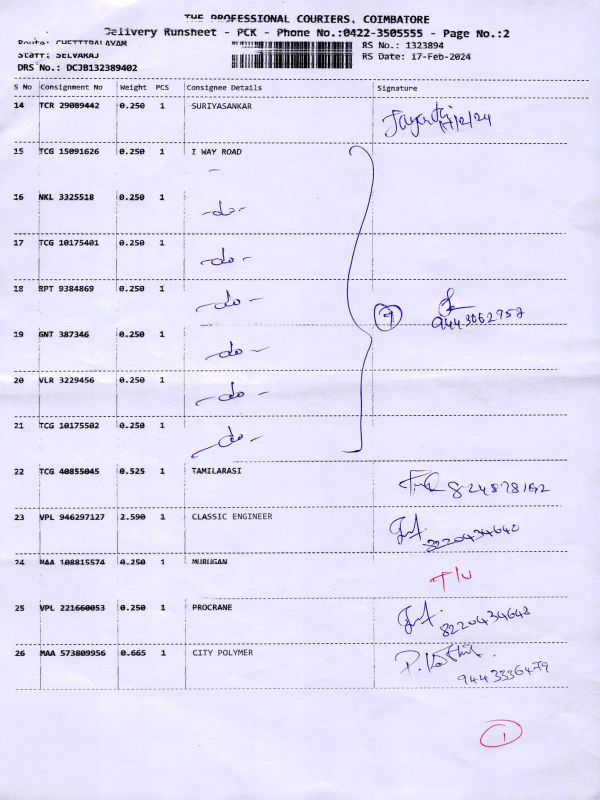 THE PROFESSIONAL COURIERS, COIMBATORE
Delivery Runsheet - PCK - Phone No.:0422-3505555 - Page No.:2
Route: CHETTIPALAYAM RS No.: 1323894
Staff: SELVARAJ RS Date: 17-Feb-2024
DRS No.: DCJB132389402
S No Consignment No Weight PCS Consignee Details Signature
14 TCR 29089442 0.250 1 SURIYASANKAR
17/2/24
15 TCG 15091626 0.250 1 I WAY ROAD
16 NKL 3325518 0.250 1
-do-
17 TCG 10175401 0.250 1
-do-
18 RPT 9384869 0.250 1
-do-
7
9443062957
19 GNT 387346 0.250 1
-do-
20 VLR 3229456 0.250 1
-do-
21 TCG 10175502 0.250 1
-do-
22 TCG 40855045 0.525 1 TAMILARASI
23 VPL 946297127 2.590 1 CLASSIC ENGINEER
8220434640
24 MAA 108815574 0.250 1 MURUGAN
25 VPL 221660053 0.250 1 PROCRANE
8220434643
26 MAA 573809956 0.665 1 CITY POLYMER
9443336479
1